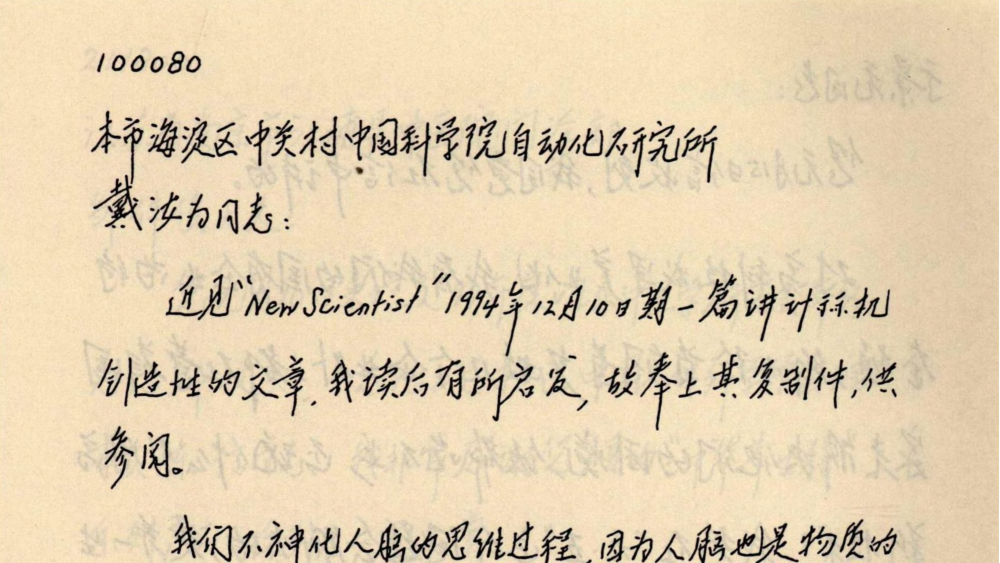 100080
本市海淀区中关村中国科学院自动化研究所
戴汝为同志:
近见"New Scientist"1994年12月10日期一篇讲计算机
创造性的文章,我读后有所启发,故奉上其复制件,供
参阅。
我们不神化人脑的思维过程,因为人脑也是物质的